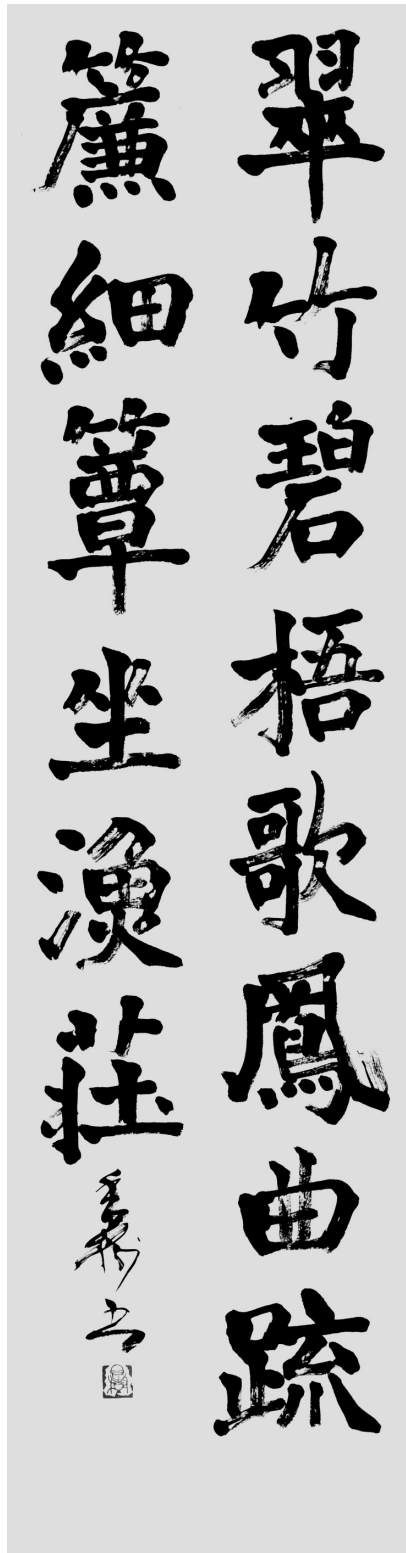 翠竹碧梧歌鳳曲疏
簾細簟坐漁莊